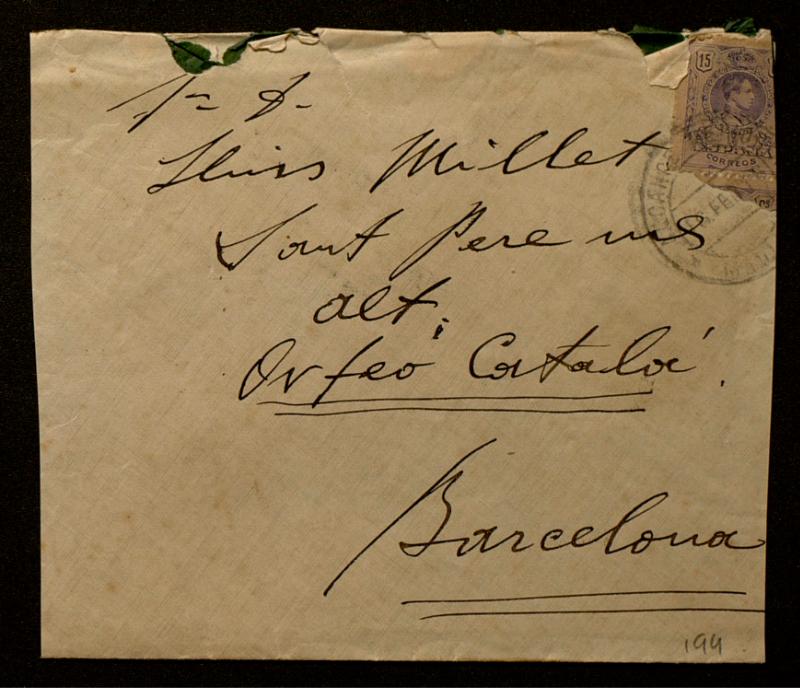 Sr D.
Lluis Millet
Sant Pere mes
alt.
Orfeó Catalá.
Barcelona
194
15
CORREOS
FEB